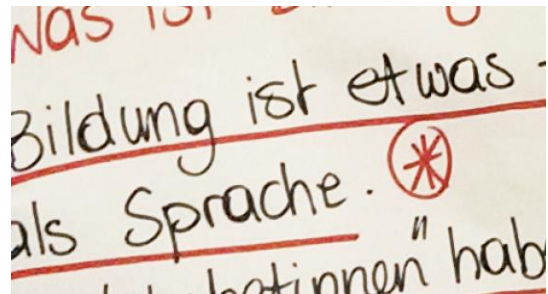 Was ist
Bildung ist etwas -
als Sprache. *
hab